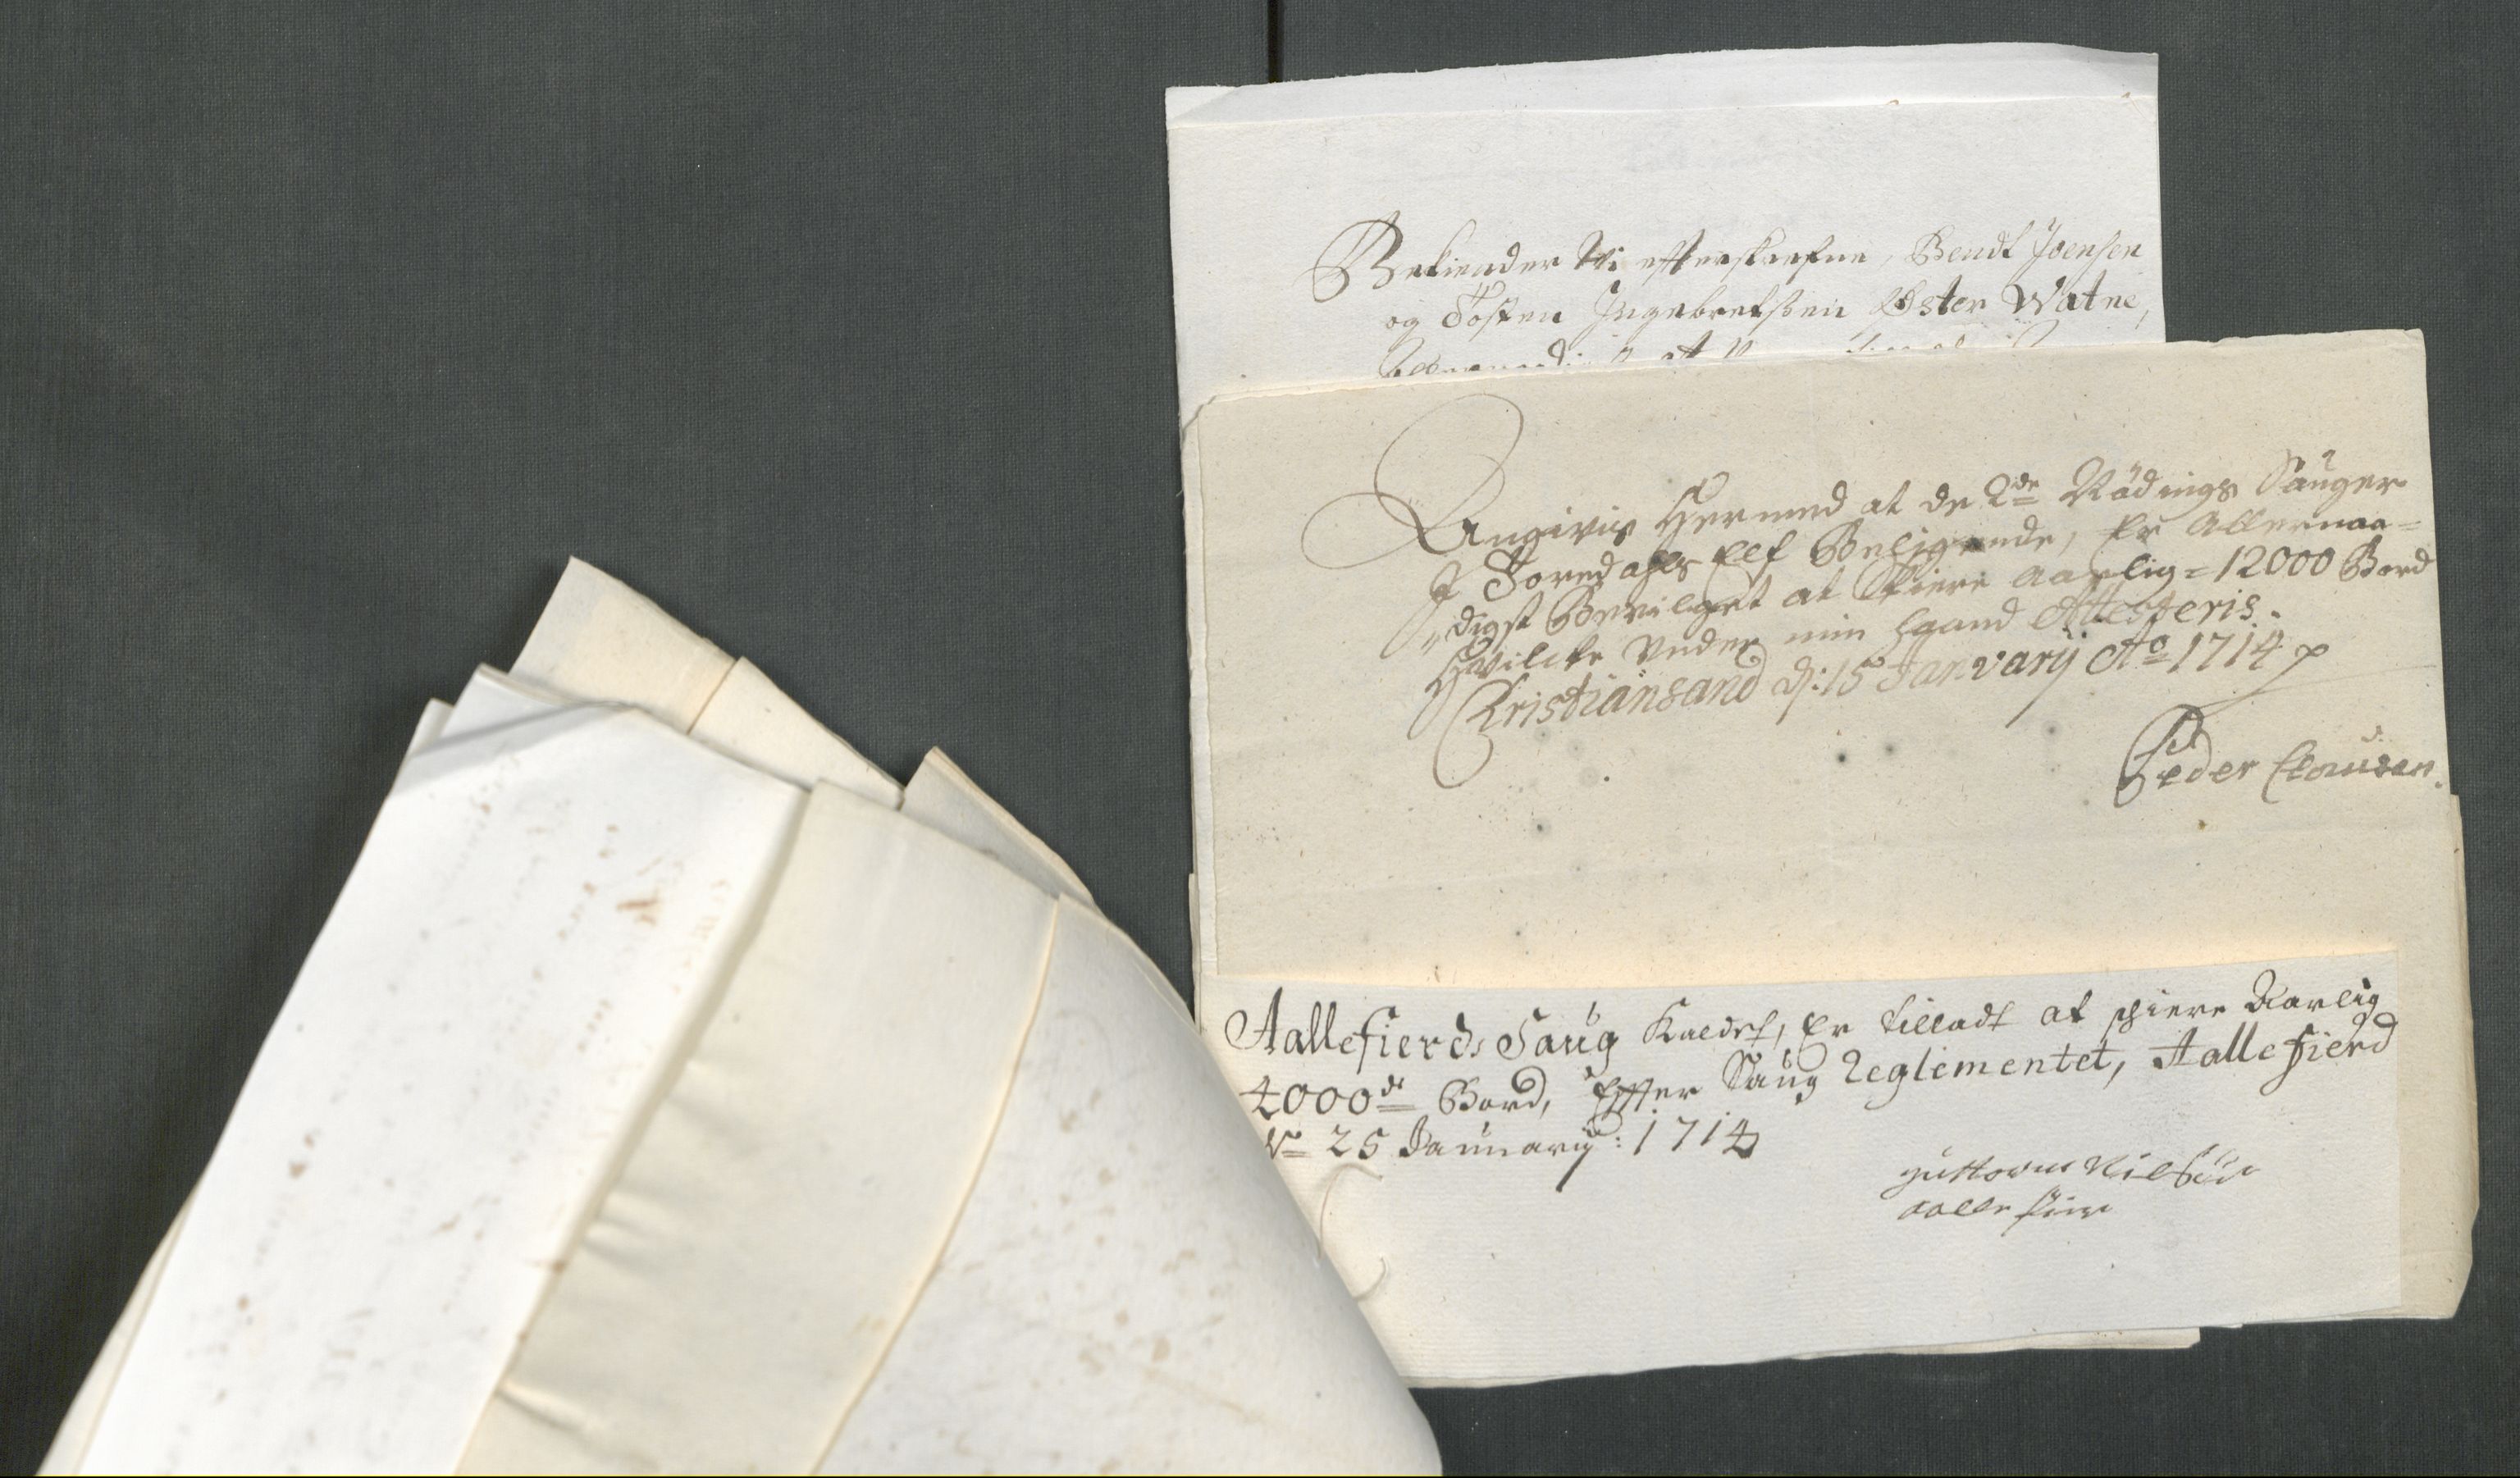 Bekiender Wi effterskrefne, Bendt Joensen
og Tosten Ingebretsen Øster Watne,
Angivis Hermed at de 2de Rødings Sauger
I Torredahls Elf Beligende, Er Allernaa=
digst Bevilget at Skiere Aarlig = 12000 Bord
Hvilcke under min Haand Attesteris.
Christiansand d: 15 Janvarij Ao 1714
Peder Clausen.
Aallefierds Saug Kaldet, Er tilladt at schiere Aarlig
4000de Bord, Effter Saug Reglementet, Aallefierd
25 Januarij: 1714
guttorm Nilsen
aalle